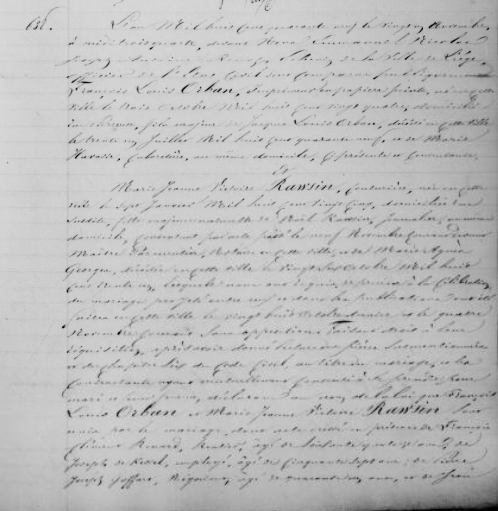 656. L'an Mil huit cent quarante neuf le vingt Novembre
à midi trois quarts, devant Nous Emmanuel Nicolas
Joseph Antoine Echevin de la Ville de Liège
officier de l'Etat Civil sont comparus publiquement
François Louis Orban, Imprimeur en papiers peints, né en cette
Ville le trois Octobre Mil huit cent vingt quatre, domicilié
fils majeur de Jacques Louis Orban, décédé en cette Ville
le trente un Juillet Mil huit cent quarante neuf, et de Marie
même domicile, ci présente et consentante.
Et
Marie Jeanne Victoire Rawsin, Couturière, née en cette
ville le sept Janvier Mil huit cent vingt cinq, domiciliée rue
fille majeure naturelle de Noël Rawsin, Journalier, au même
domicile, consentant par acte passé le neuf Novembre courant devant
Maître Notaire en cette ville, et de Marie Agnès
George, décédée en cette ville le vingt six Octobre Mil huit
cent trente un, lesquels nous ont requis de procéder à la Célébration
du mariage projeté entre eux et dont les publications ont été
faites en cette ville le vingt huit Octobre dernier et le quatre
Novembre courant sans opposition. Faisant droit à leur
réquisition, après avoir donné lecture des pièces susmentionnées
et du chapitre Six du Code Civil, au titre du mariage, et les
Contractants ayant mutuellement consenti à se prendre pour
mari et pour femme, déclarons au nom de la loi que François
Louis Orban et Marie Jeanne Victoire Rawsin sont
unis par le mariage, dont acte rédigé en présence de François
Renard, Rentier, âgé de soixante quatre ans, de
Joseph de employé, âgé de Cinquante sept ans, de
Joseph Négociant, âgé de quarante ans, et de Jean